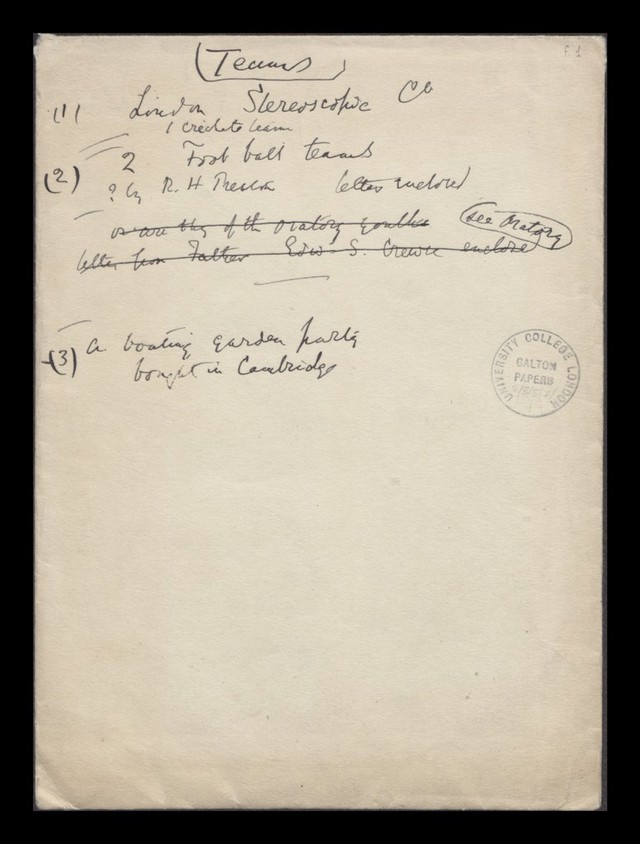 f. 1
(Teams)
(1) London Stereoscopic Co
1 crickete team
2 Foot ball teams
(2) ? by R. H Preston letter enclosed
as are they of the oratory youths (see Oratory)
letter from Father Edw. S. enclose
(3) a boating garden party
bought in Cambridge
UNIVERSITY COLLEGE LONDON
GALTON
PAPERS